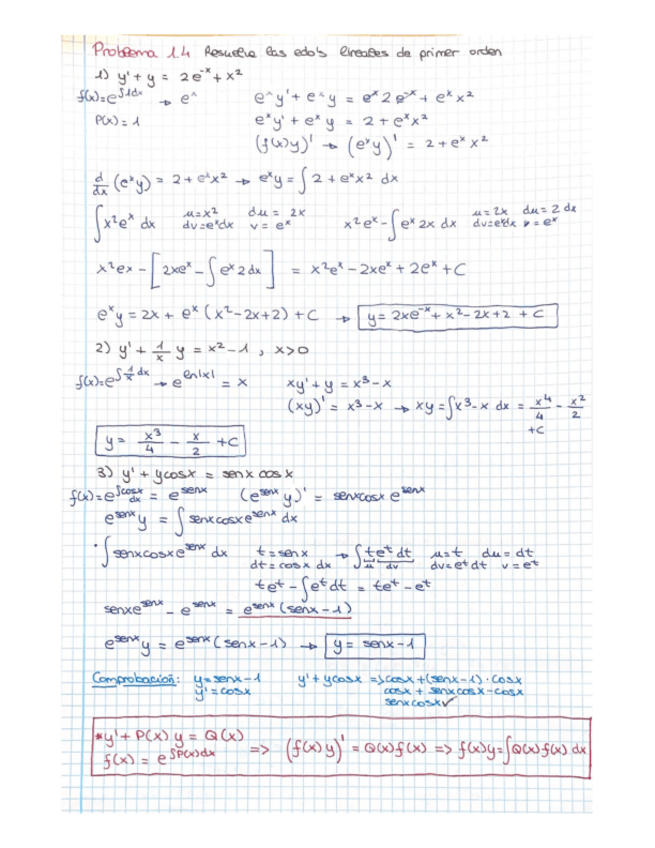 Problema 1.4 Resuelve las edo's lineales de primer orden
1) y' + y = 2e⁻ˣ + x²
f(x)=e^∫1dx → eˣ eˣy' + eˣy = eˣ2e⁻ˣ + eˣx²
P(x)=1 eˣy' + eˣy = 2 + eˣx²
(f(x)y)' → (eˣy)' = 2 + eˣx²
d/dx (eˣy) = 2 + eˣx² → eˣy = ∫2 + eˣx² dx
∫x²eˣ dx u=x² du=2x x²eˣ - ∫eˣ2x dx u=2x du=2dx
dv=eˣdx v=eˣ dv=eˣdx v=eˣ
x²ex - [2xeˣ - ∫eˣ2dx] = x²eˣ - 2xeˣ + 2eˣ + C
eˣy = 2x + eˣ(x²-2x+2) + C → y = 2xe⁻ˣ + x² - 2x + 2 + C
2) y' + 1/x y = x² - 1 , x>0
f(x)=e^∫1/x dx → e^ln|x| = x xy' + y = x³ - x
(xy)' = x³ - x → xy = ∫x³-x dx = x⁴/4 - x²/2
+C
y = x³/4 - x/2 + C
3) y' + ycosx = senx cosx
f(x)=e^∫cosx dx = e^senx (e^senx y)' = senxcosx e^senx
e^senx y = ∫senxcosxe^senx dx
· ∫senxcosxe^senx dx t=senx → ∫teᵗdt u=t du=dt
dt=cosx dx u dv dv=eᵗdt v=eᵗ
teᵗ - ∫eᵗdt = teᵗ - eᵗ
senxe^senx - e^senx = e^senx(senx-1)
e^senx y = e^senx(senx-1) → y = senx-1
Comprobación: y=senx-1 y'+ycosx = cosx+(senx-1)·cosx
y'=cosx cosx + senxcosx-cosx
senxcosx✓
*y' + P(x)y = Q(x)
f(x) = e^∫P(x)dx => (f(x)y)' = Q(x)f(x) => f(x)y=∫Q(x)f(x)dx